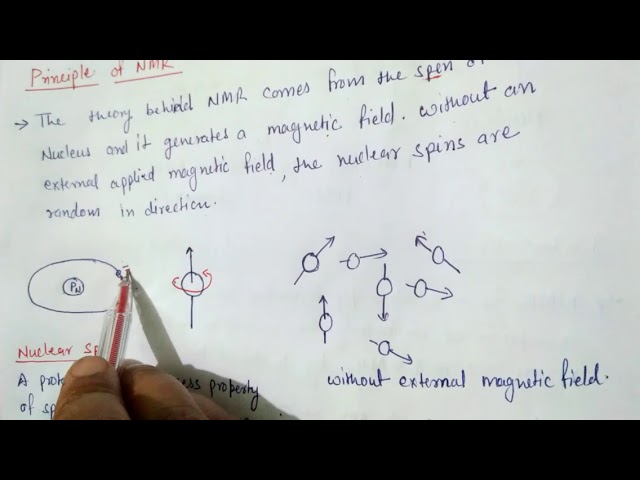 Principle of NMR
→ The theory behind NMR comes from the spin of
Nucleus and it generates a magnetic field. without an
external applied magnetic field, the nuclear spins are
random in direction.
PN
Nuclear Sp
A prot ess property
of sp
without external magnetic field.